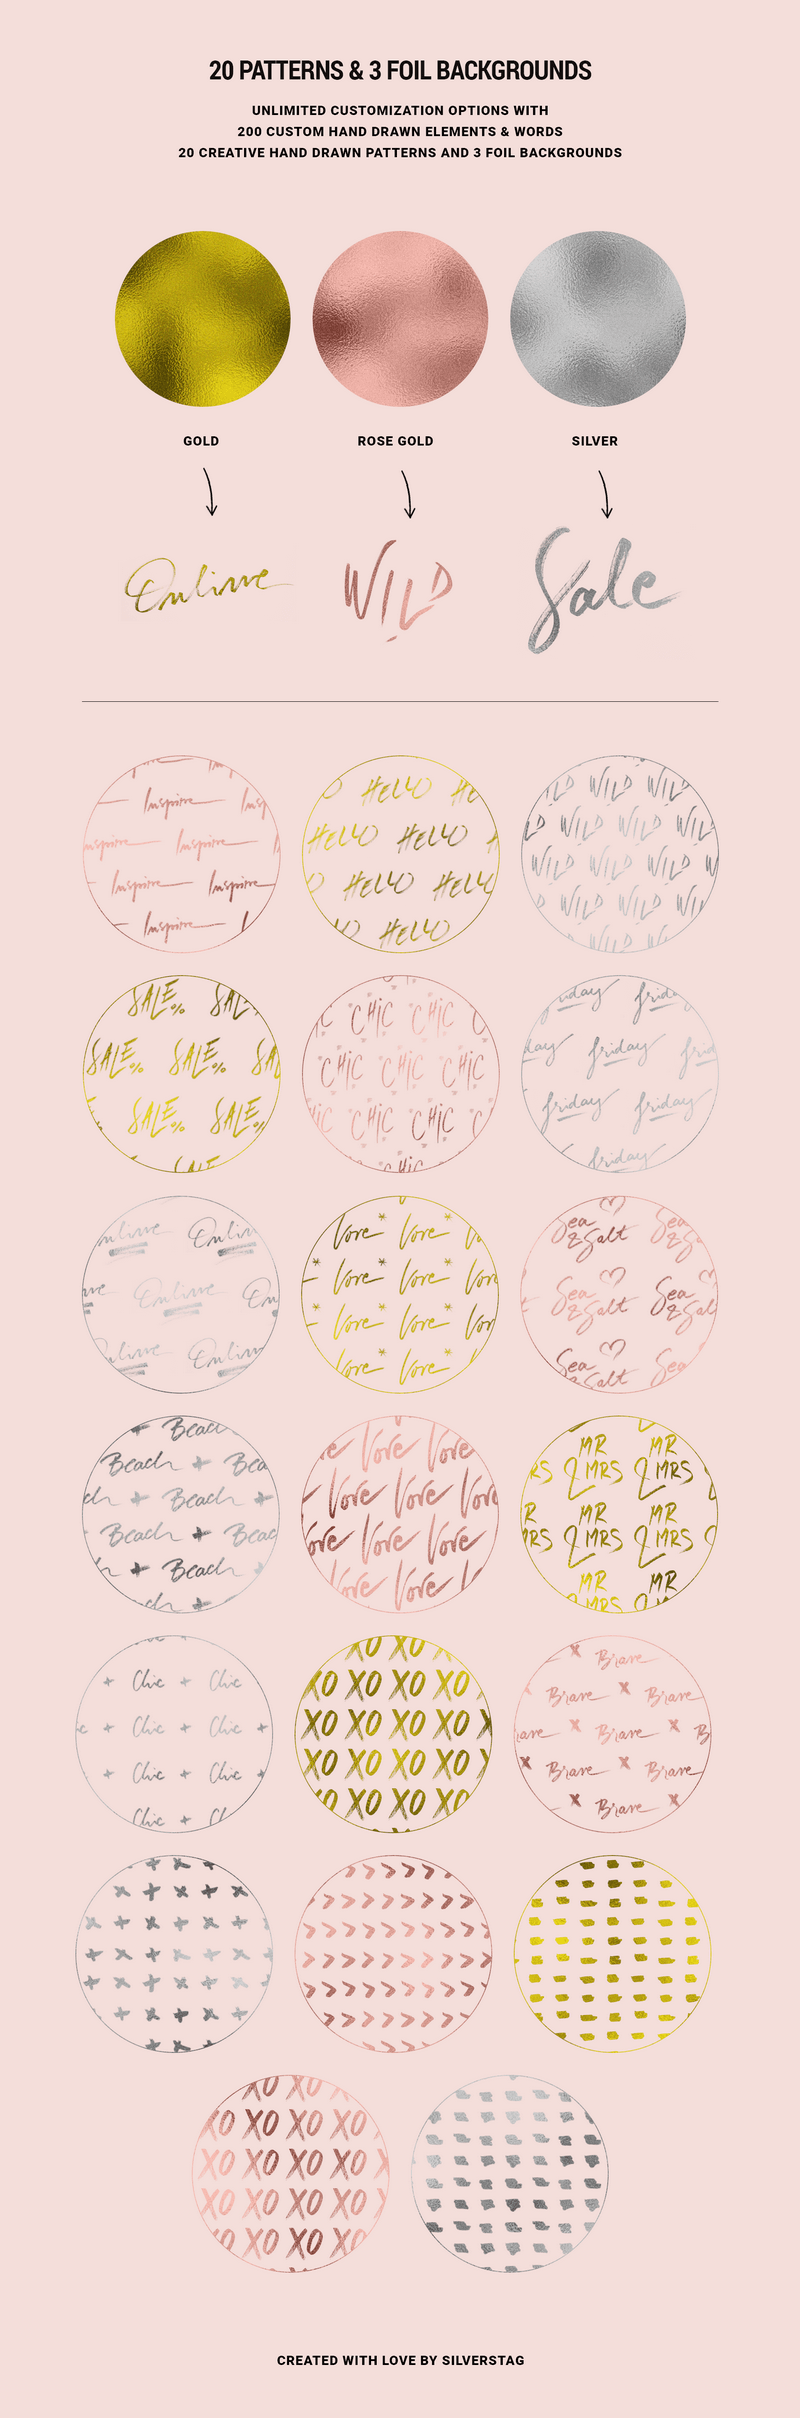 20 PATTERNS & 3 FOIL BACKGROUNDS
UNLIMITED CUSTOMIZATION OPTIONS WITH
200 CUSTOM HAND DRAWN ELEMENTS & WORDS
20 CREATIVE HAND DRAWN PATTERNS AND 3 FOIL BACKGROUNDS
GOLD ROSE GOLD SILVER
Online WILD Sale
Inspire HELLO WILD
Inspire HELLO HELLO WILD WILD WILD
Inspire Inspire HELLO HELLO WILD WILD WILD
Inspire HELLO WILD WILD WILD
SALE% SALE CHIC CHIC friday
SALE% SALE% CHIC CHIC CHIC friday
SALE% SALE% CHIC CHIC friday friday
friday
Online Online Love * Love * Sea & Salt Sea
Online Love * Love * Love Sea & Salt Sea & Salt
Online Online Love * Love * Love Sea & Salt Sea
Love * Love *
Beach Love Love MR & MRS MR & MRS
Beach + Bea Love Love Love MR & MRS MR & MRS
+ Beach + Love Love Love MR MR
Beach + Beach Love Love
+ Beach
+ Chic + Chic XO XO XO x Brave
Chic + Chic + XO XO XO XO Brave x Brave
+ Chic + Chic XO XO XO XO x Brave x
Chic + XO XO XO XO x Brave x Brave
XO XO XO XO x Brave x
XO XO XO
XO XO XO XO
XO XO XO XO
XO XO XO XO
XO XO XO XO
CREATED WITH LOVE BY SILVERSTAG